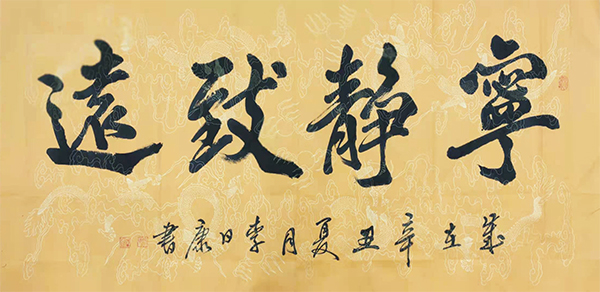 寧靜致遠
歲在辛丑夏月李日康書